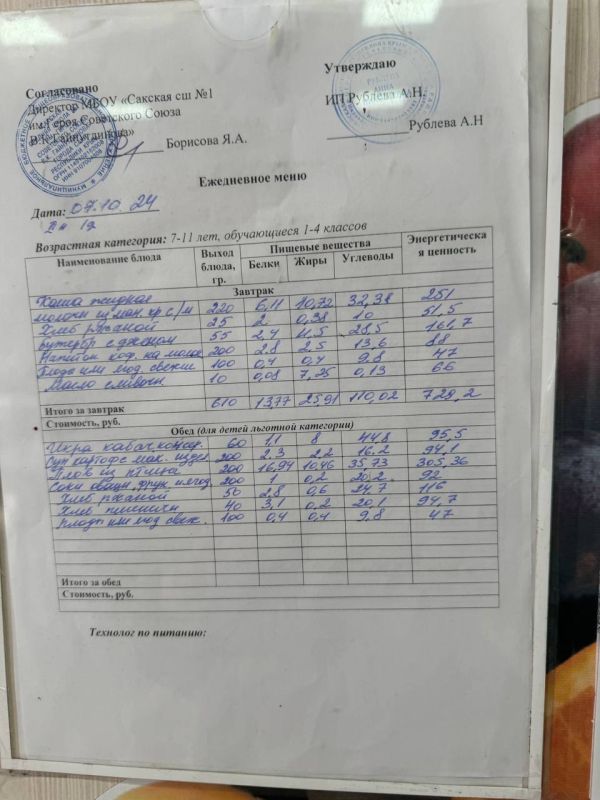 Согласовано
Директор МБОУ «Сакская сш №1
им. Героя Советского Союза
В.К. Гайнутдинова»
Борисова Я.А.
Утверждаю
ИП Рублева А.Н.
Рублева А.Н
Ежедневное меню
Дата: 07.10.24
Возрастная категория: 7-11 лет, обучающиеся 1-4 классов
Наименование блюда Выход блюда, гр. Пищевые вещества Энергетическа я ценность
Белки Жиры Углеводы
Завтрак
Каша жидкая
молочн из ман. кр с/м 220 6,11 10,72 32,38 251
Хлеб ржаной 25 2 0,38 10 51,5
Бутербр с джемом 55 2,4 28,5 161,7
Напиток коф. на молок 200 2.8 2,5 13,6 88
Плоды или яод. свежие 100 0,4 0,4 9,8 47
Масло сливочн 10 0,08 7,25 0,13 66
Итого за завтрак 610 13,77 25,91 110,02 729,2
Стоимость, руб.
Обед (для детей льготной категории)
Икра кабачковая 60 1,1 8 44,8 95,5
Суп картоф с мак. издел 200 2,3 2,2 16,2 94,1
Плов из птицы 200 16,94 10,46 35,73 305,36
Соки овощн, фрук и ягод 200 1 0,2 20,2 92
Хлеб ржаной 50 2,8 0,6 24,7 116
Хлеб пшеничн 40 3,1 0,2 20,1 94,7
плоды или яод свеж. 100 0,4 0,4 9,8 47
Итого за обед
Стоимость, руб.
Технолог по питанию: